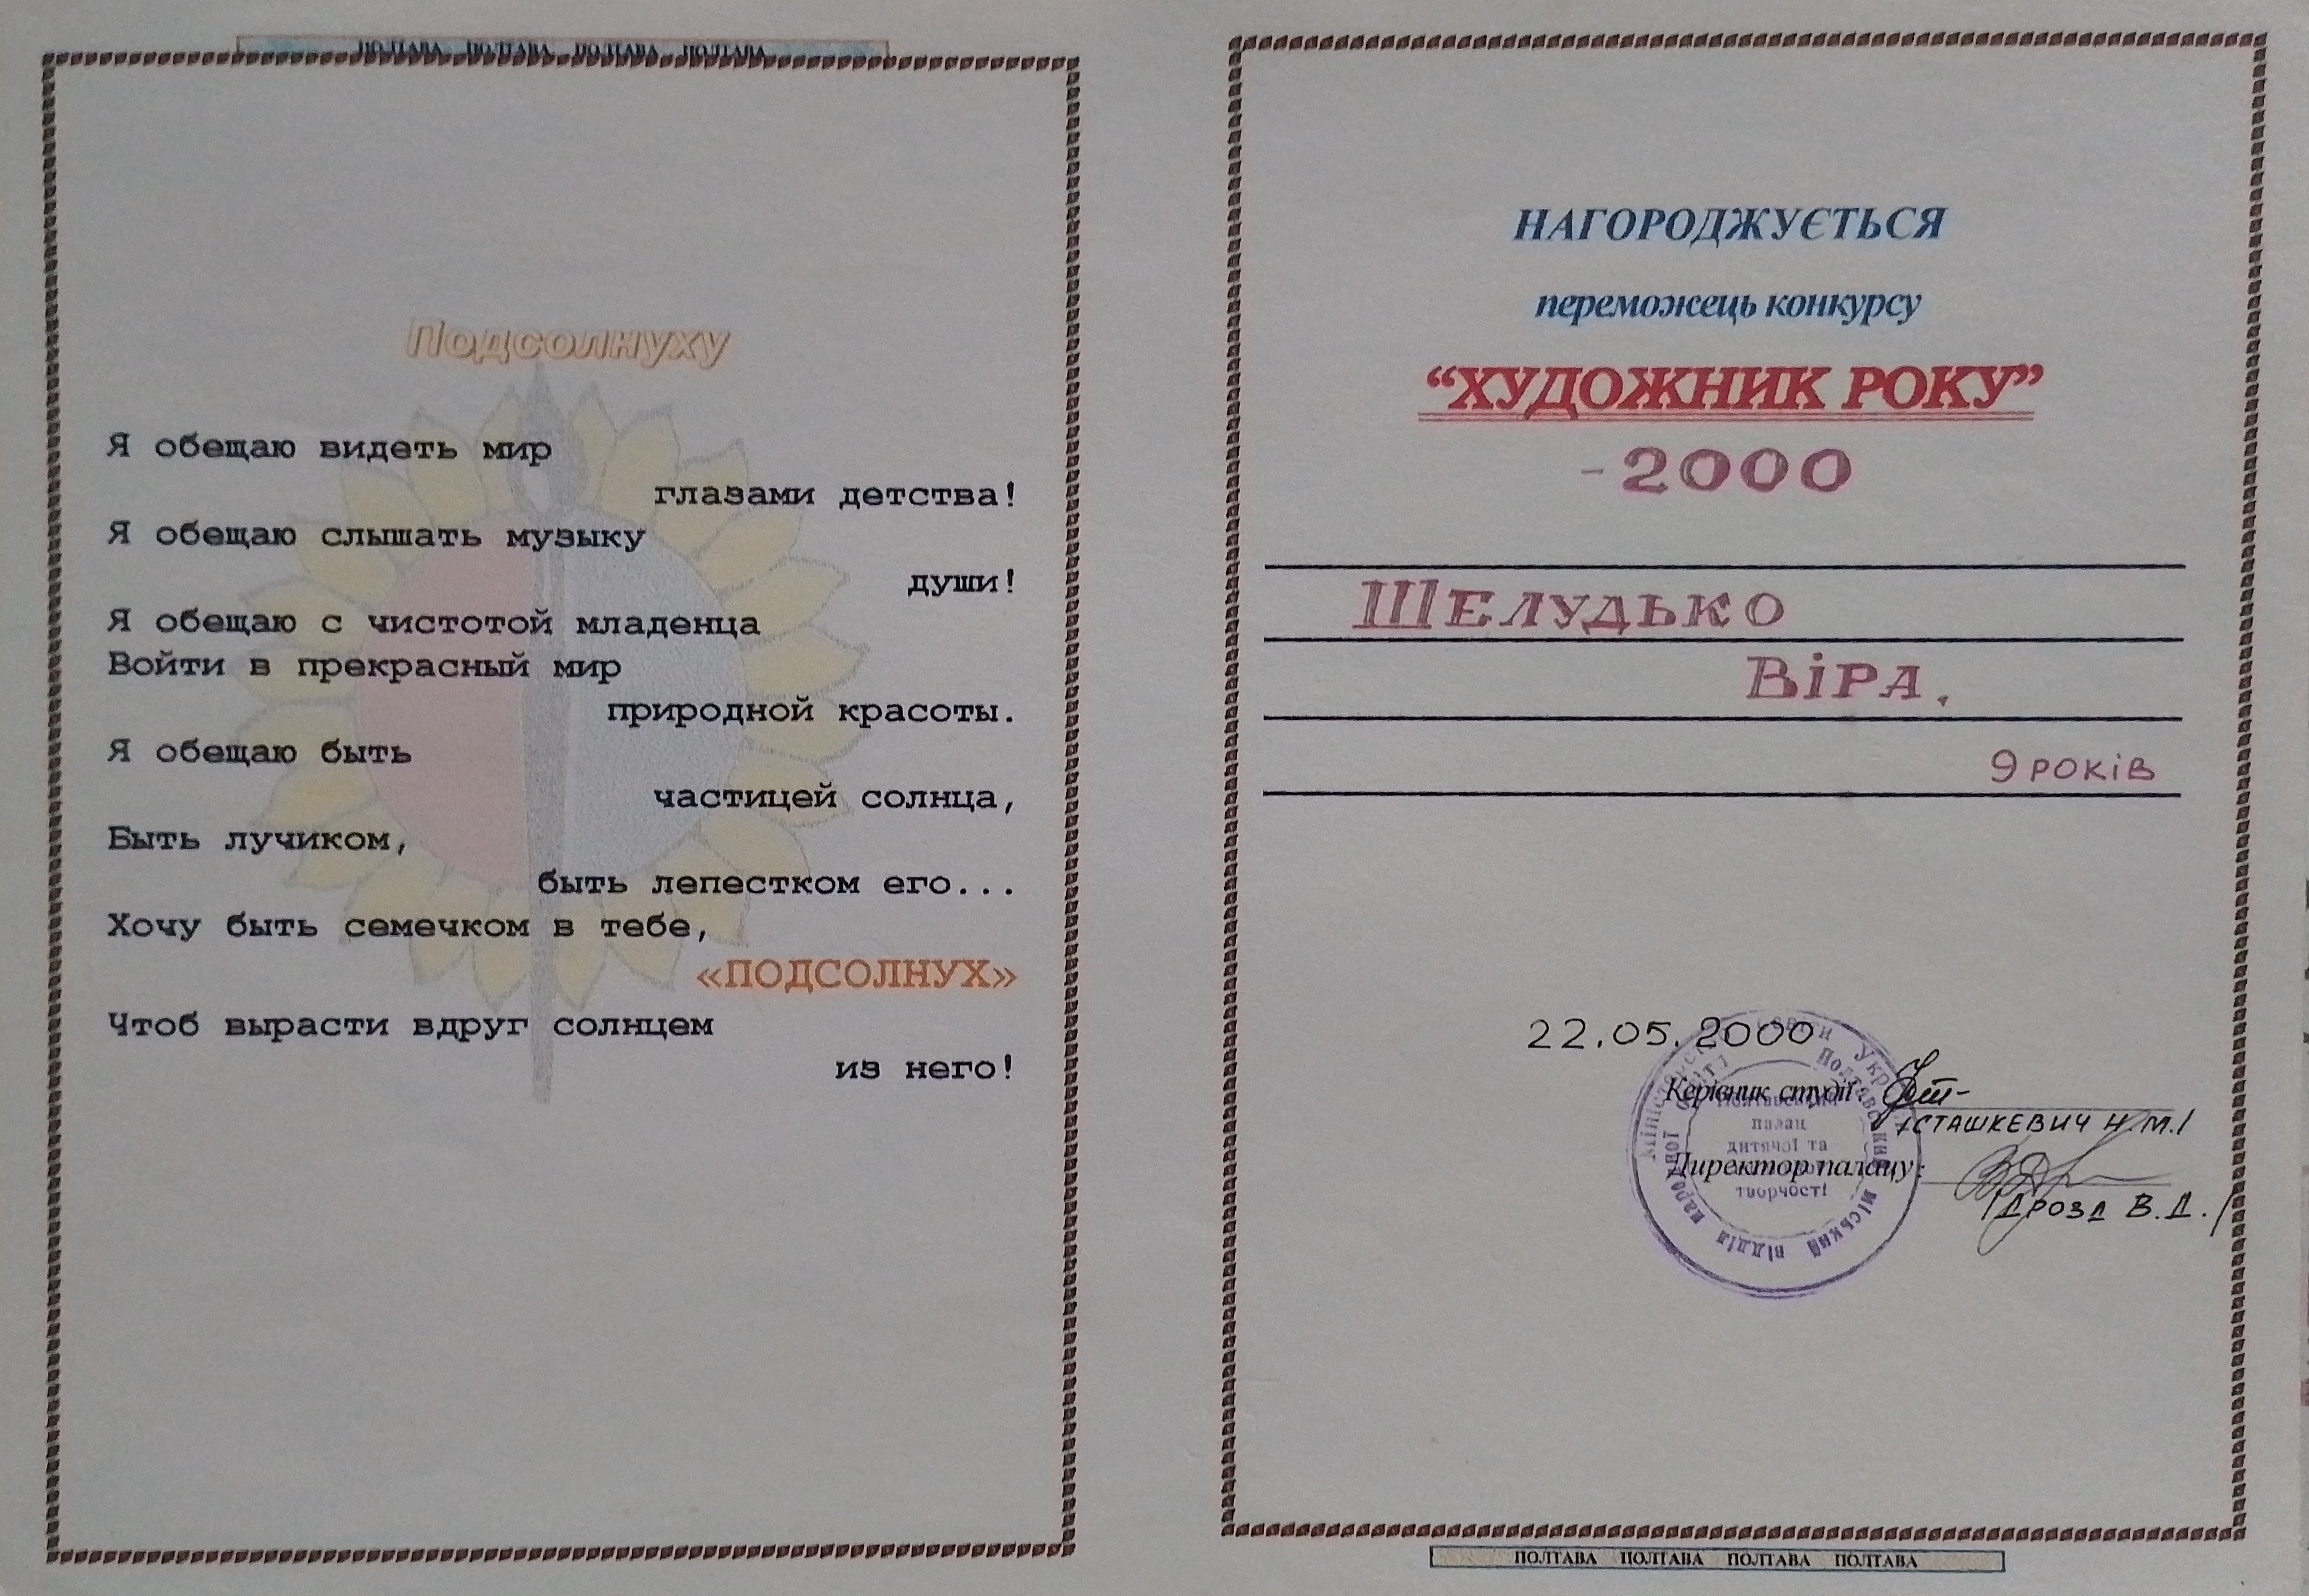 ПОЛТАВА ПОЛТАВА ПОЛТАВА ПОЛТАВА
Подсолнуху
Я обещаю видеть мир
глазами детства!
Я обещаю слышать музыку
души!
Я обещаю с чистотой младенца
Войти в прекрасный мир
природной красоты.
Я обещаю быть
частицей солнца,
Быть лучиком,
быть лепестком его...
Хочу быть семечком в тебе,
«ПОДСОЛНУХ»
Чтоб вырасти вдруг солнцем
из него!
НАГОРОДЖУЄТЬСЯ
переможець конкурсу
“ХУДОЖНИК РОКУ”
-2000
ШЕЛУДЬКО
ВіРА.
9 років
22.05.2000
Керівник студії:
/СТАШКЕВИЧ Н.М./
Директор палацу:
/ДРОЗД В.Д./
Полтавський міський відділ народної
палац
дитячої та
творчості
ПОЛТАВА ПОЛТАВА ПОЛТАВА ПОЛТАВА